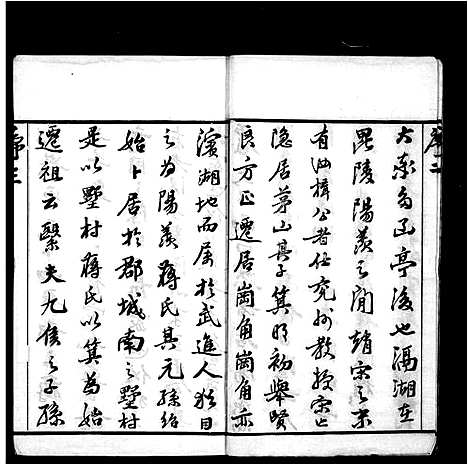 序二
大率函亭後也滆湖在
毘陵陽羨之間趙宋之末
有汕樟公者任兗州教授宋亡
隐居茅山其子箕明初舉賢
良方正遷居崗角崗角亦
濱湖地而屬於武進人猶目
之為陽羨蔣氏其元孫紹
始卜居於郡城南之墅村
是以墅村蔣氏以箕為始
遷祖云繄夫九侯之子孫
序三